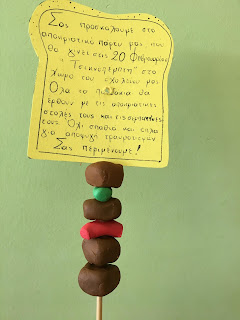 Σας προσκαλούμε στο
αποκριάτικο πάρτυ μας που
θα γίνει στις 20 Φεβρουαρίου
"Τσικνοπέμπτη" στο
χώρο του σχολείου μας
Όλα τα παιδάκια θα
έρθουν με τις αποκριάτικες
στολές τους και τις σερπαντίνες
τους. Όχι σπαθιά και όπλα
για αποφυγή τραυματισμών
Σας περιμένουμε!